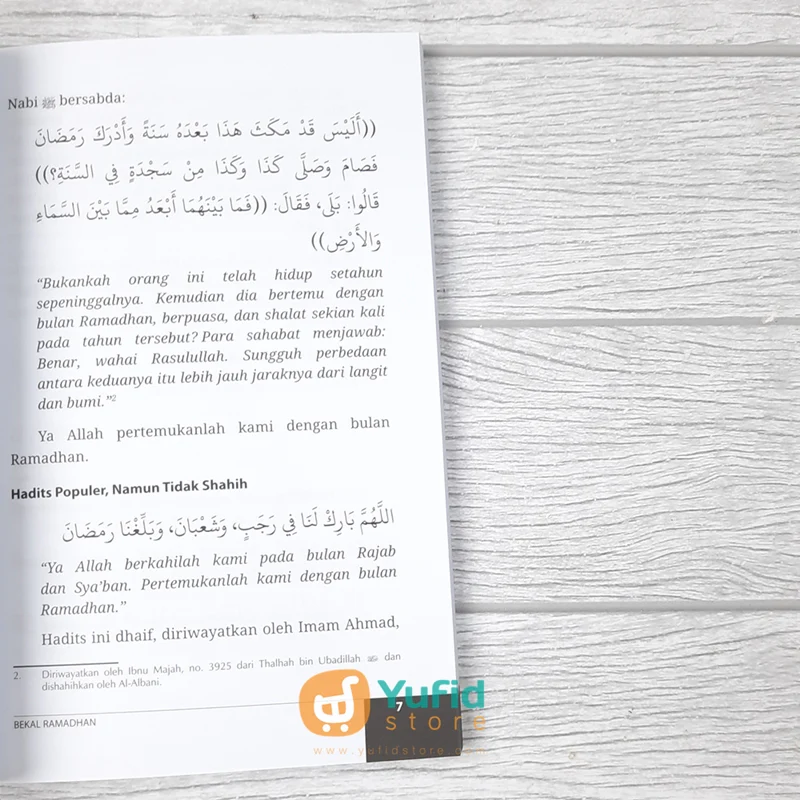 Nabi ﷺ bersabda:
((أَلَيْسَ قَدْ مَكَثَ هَذَا بَعْدَهُ سَنَةً وَأَدْرَكَ رَمَضَانَ
فَصَامَ وَصَلَّى كَذَا وَكَذَا مِنْ سَجْدَةٍ فِي السَّنَةِ؟))
قَالُوا: بَلَى، فَقَالَ: ((فَمَا بَيْنَهُمَا أَبْعَدُ مِمَّا بَيْنَ السَّمَاءِ
وَالأَرْضِ))
“Bukankah orang ini telah hidup setahun
sepeninggalnya. Kemudian dia bertemu dengan
bulan Ramadhan, berpuasa, dan shalat sekian kali
pada tahun tersebut? Para sahabat menjawab:
Benar, wahai Rasulullah. Sungguh perbedaan
antara keduanya itu lebih jauh jaraknya dari langit
dan bumi.”2
Ya Allah pertemukanlah kami dengan bulan
Ramadhan.
Hadits Populer, Namun Tidak Shahih
اللَّهُمَّ بَارِكْ لَنَا فِي رَجَبٍ، وَشَعْبَانَ، وَبَلِّغْنَا رَمَضَانَ
“Ya Allah berkahilah kami pada bulan Rajab
dan Sya’ban. Pertemukanlah kami dengan bulan
Ramadhan.”
Hadits ini dhaif, diriwayatkan oleh Imam Ahmad,
2 Diriwayatkan oleh Ibnu Majah, no. 3925 dari Thalhah bin Ubadillah dan
dishahihkan oleh Al-Albani.
BEKAL RAMADHAN
7
Yufid
store
www.yufidstore.com